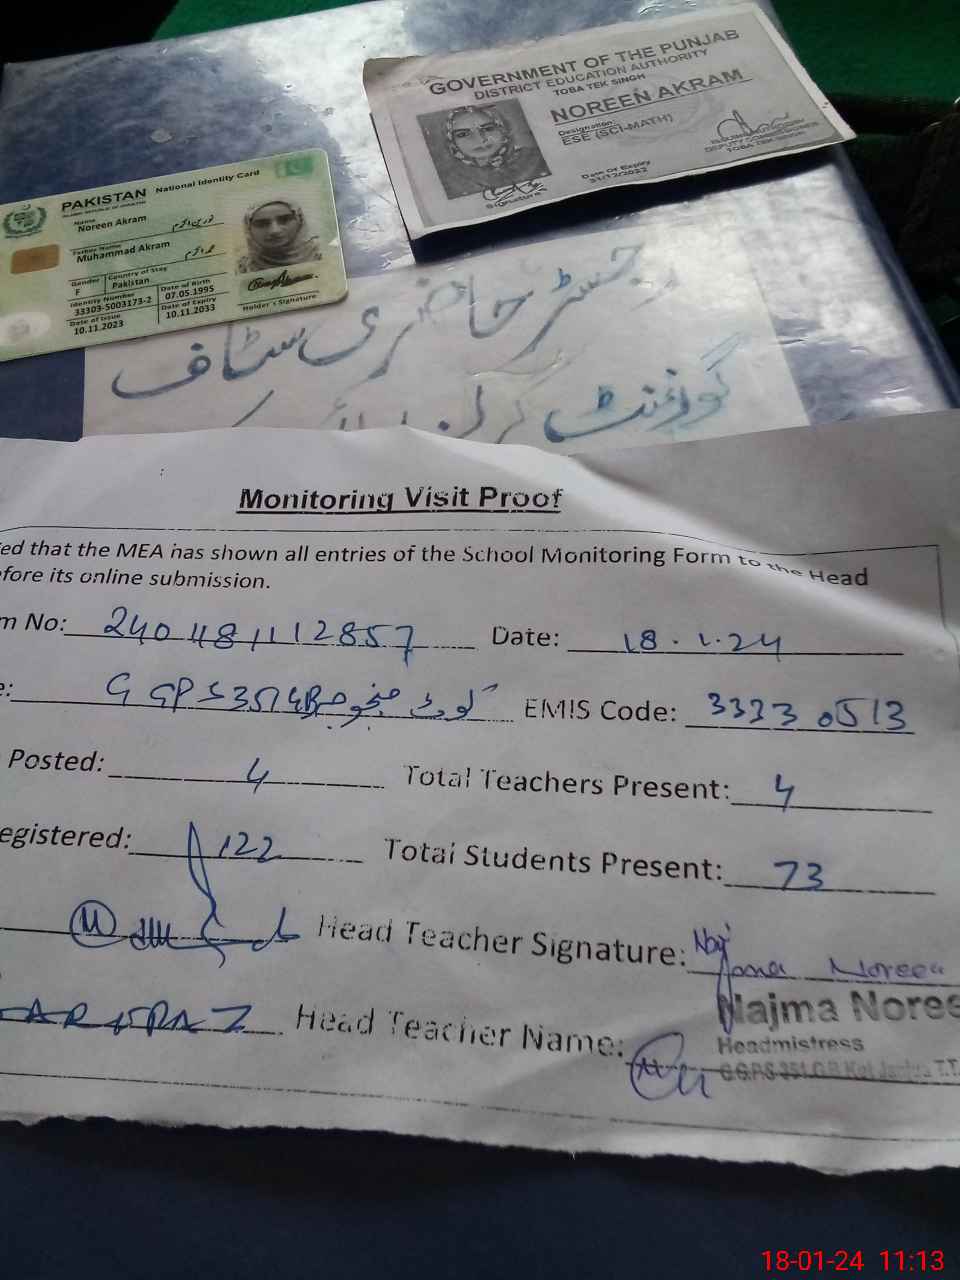 GOVERNMENT OF THE PUNJAB
DISTRICT EDUCATION AUTHORITY
TOBA TEK SINGH
NOREEN AKRAM
Designation:
ESE (SCI-MATH)
DEPUTY COMMISSIONER
TOBA TEK SINGH
Date Of Expiry
31/12/2022
Signature
PAKISTAN National Identity Card
ISLAMIC REPUBLIC OF PAKISTAN
Name
Noreen Akram
نورین اکرم
Father Name
Muhammad Akram
محمد اکرم
Gender Country of Stay
F Pakistan
Identity Number Date of Birth
33303-5003173-2 07.05.1995
Date of Issue Date of Expiry
10.11.2023 10.11.2033
Holder's Signature
رجسٹر حاضری سٹاف
گورنمنٹ گرلز
Monitoring Visit Proof
ed that the MEA has shown all entries of the School Monitoring Form to the Head
fore its online submission.
m No: Date: 18.1.24
e: EMIS Code: 33330513
Posted: 4 Total Teachers Present: 4
egistered: 122 Total Students Present: 73
Head Teacher Signature: Najma Noreen
Najma Noree
Head Teacher Name:
Headmistress
18-01-24 11:13